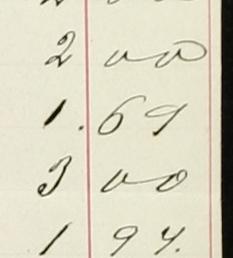 2 00
1.69
3 00
1 94.